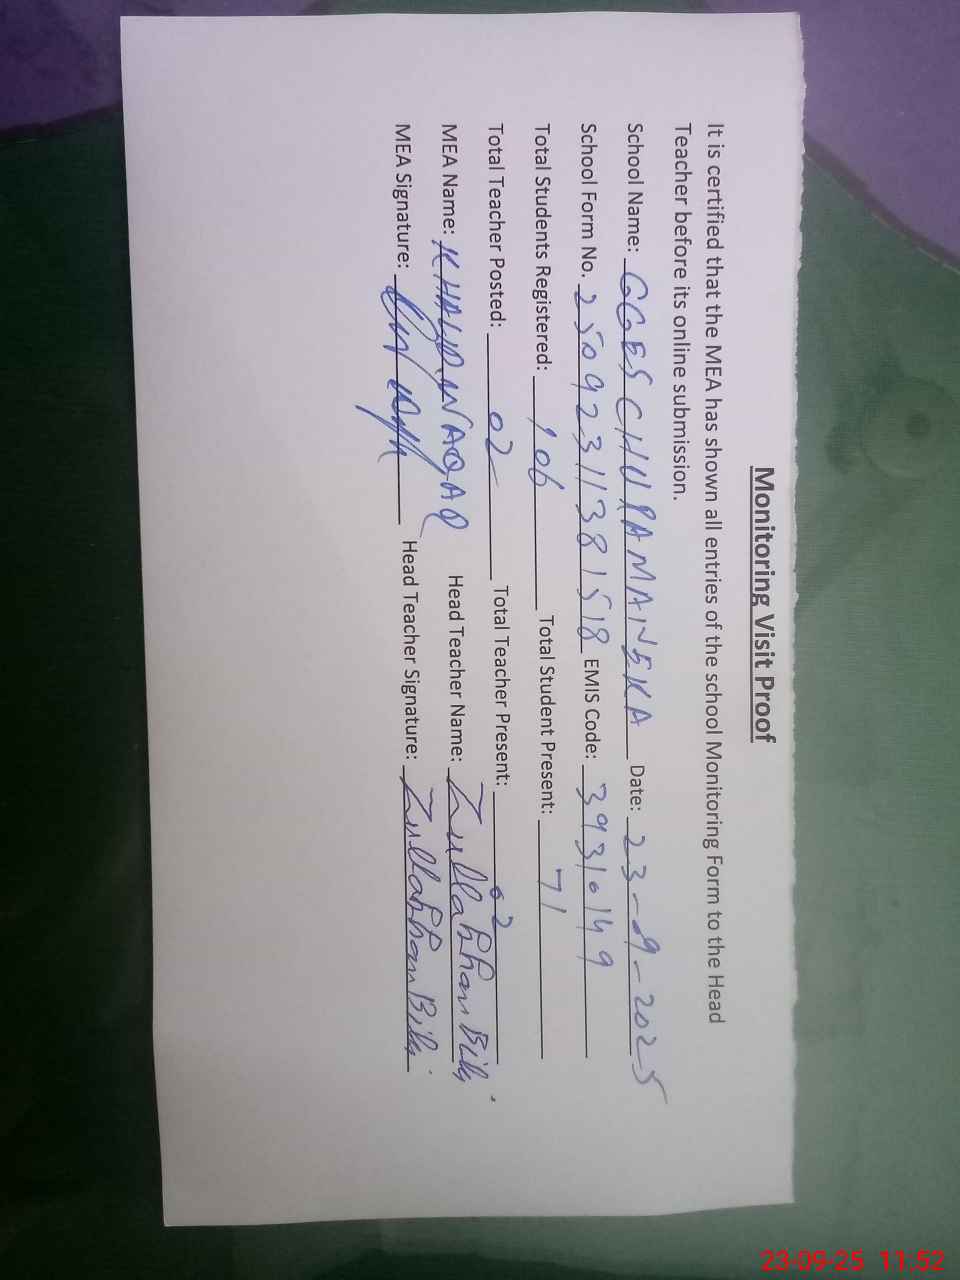 Monitoring Visit Proof
It is certified that the MEA has shown all entries of the school Monitoring Form to the Head
Teacher before its online submission.
School Name: GGES CHUPA MANEKA Date: 23-9-2025
School Form No. 25092311381518 EMIS Code: 39310149
Total Students Registered: 106 Total Student Present: 71
Total Teacher Posted: 02 Total Teacher Present: 02
MEA Name: Head Teacher Name: Bibi
MEA Signature: Head Teacher Signature: Bibi
23-09-25 11:52